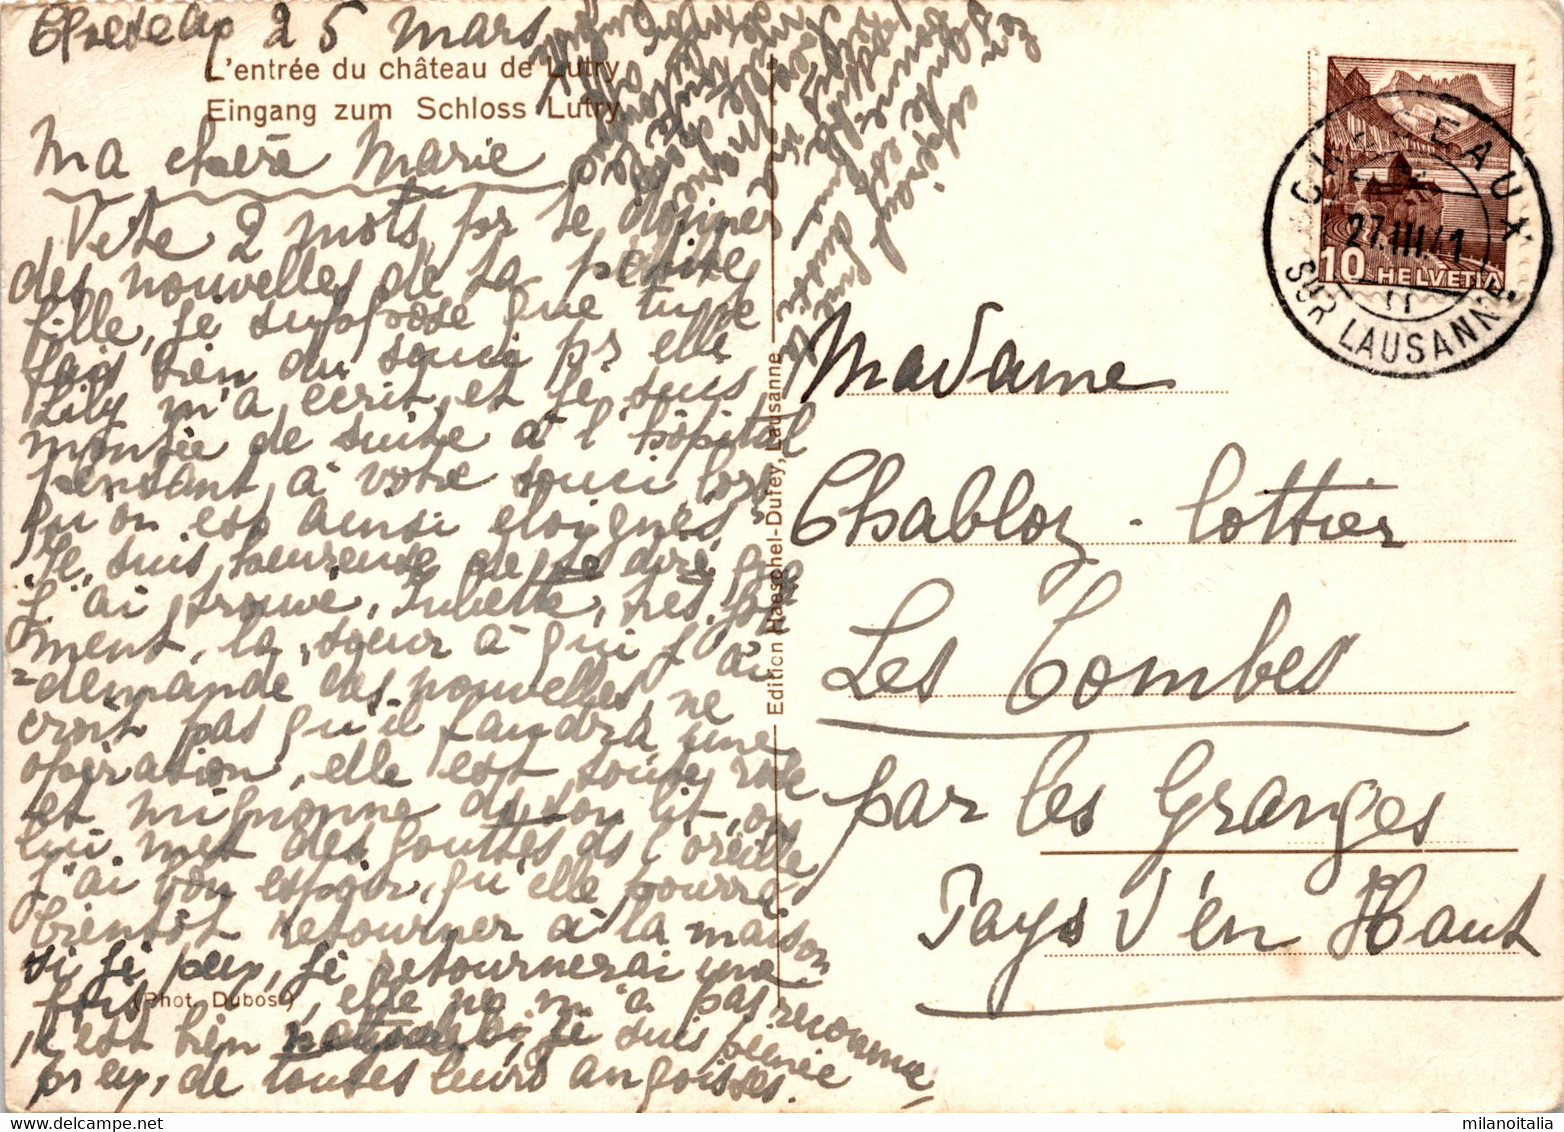 25 mars
L'entrée du château de Lutry
Eingang zum Schloss Lutry
Ma chère Marie
Vite 2 mots pr te donner
des nouvelles de ta petite
fille, je suppose que tu te
fais bien du souci pr elle
Lily m'a écrit, et je suis
montée de suite à l'hôpital
pensant à votre souci lors
qu'on est ainsi eloignés,
Je suis heureuse de te dire que
j'ai trouvé, Juliette, très gaie
ment, la soeur à qui j'ai
demandé des nouvelles, ne
croit pas qu'il faudra une
opération, elle est toute rose
et mignonne ds son lit, on
lui met des gouttes ds l'oreille
j'ai bon espoir, qu'elle pourra
bientôt retourner à la maison
si je peux, je retournerai une
fois, elle ne m'a pas reconnue
(Phot. Dubost)
c'est bien je suis peinée
pr eux, de toutes leurs angoisses.
Edition Haeschel-Dufey, Lausanne
CHESEAUX
27.III.41
SUR LAUSANNE
10 HELVETIA
Madame
Chabloz-Lottier
Les Combes
par les Granges
Pays d'en Haut
milanoitalia